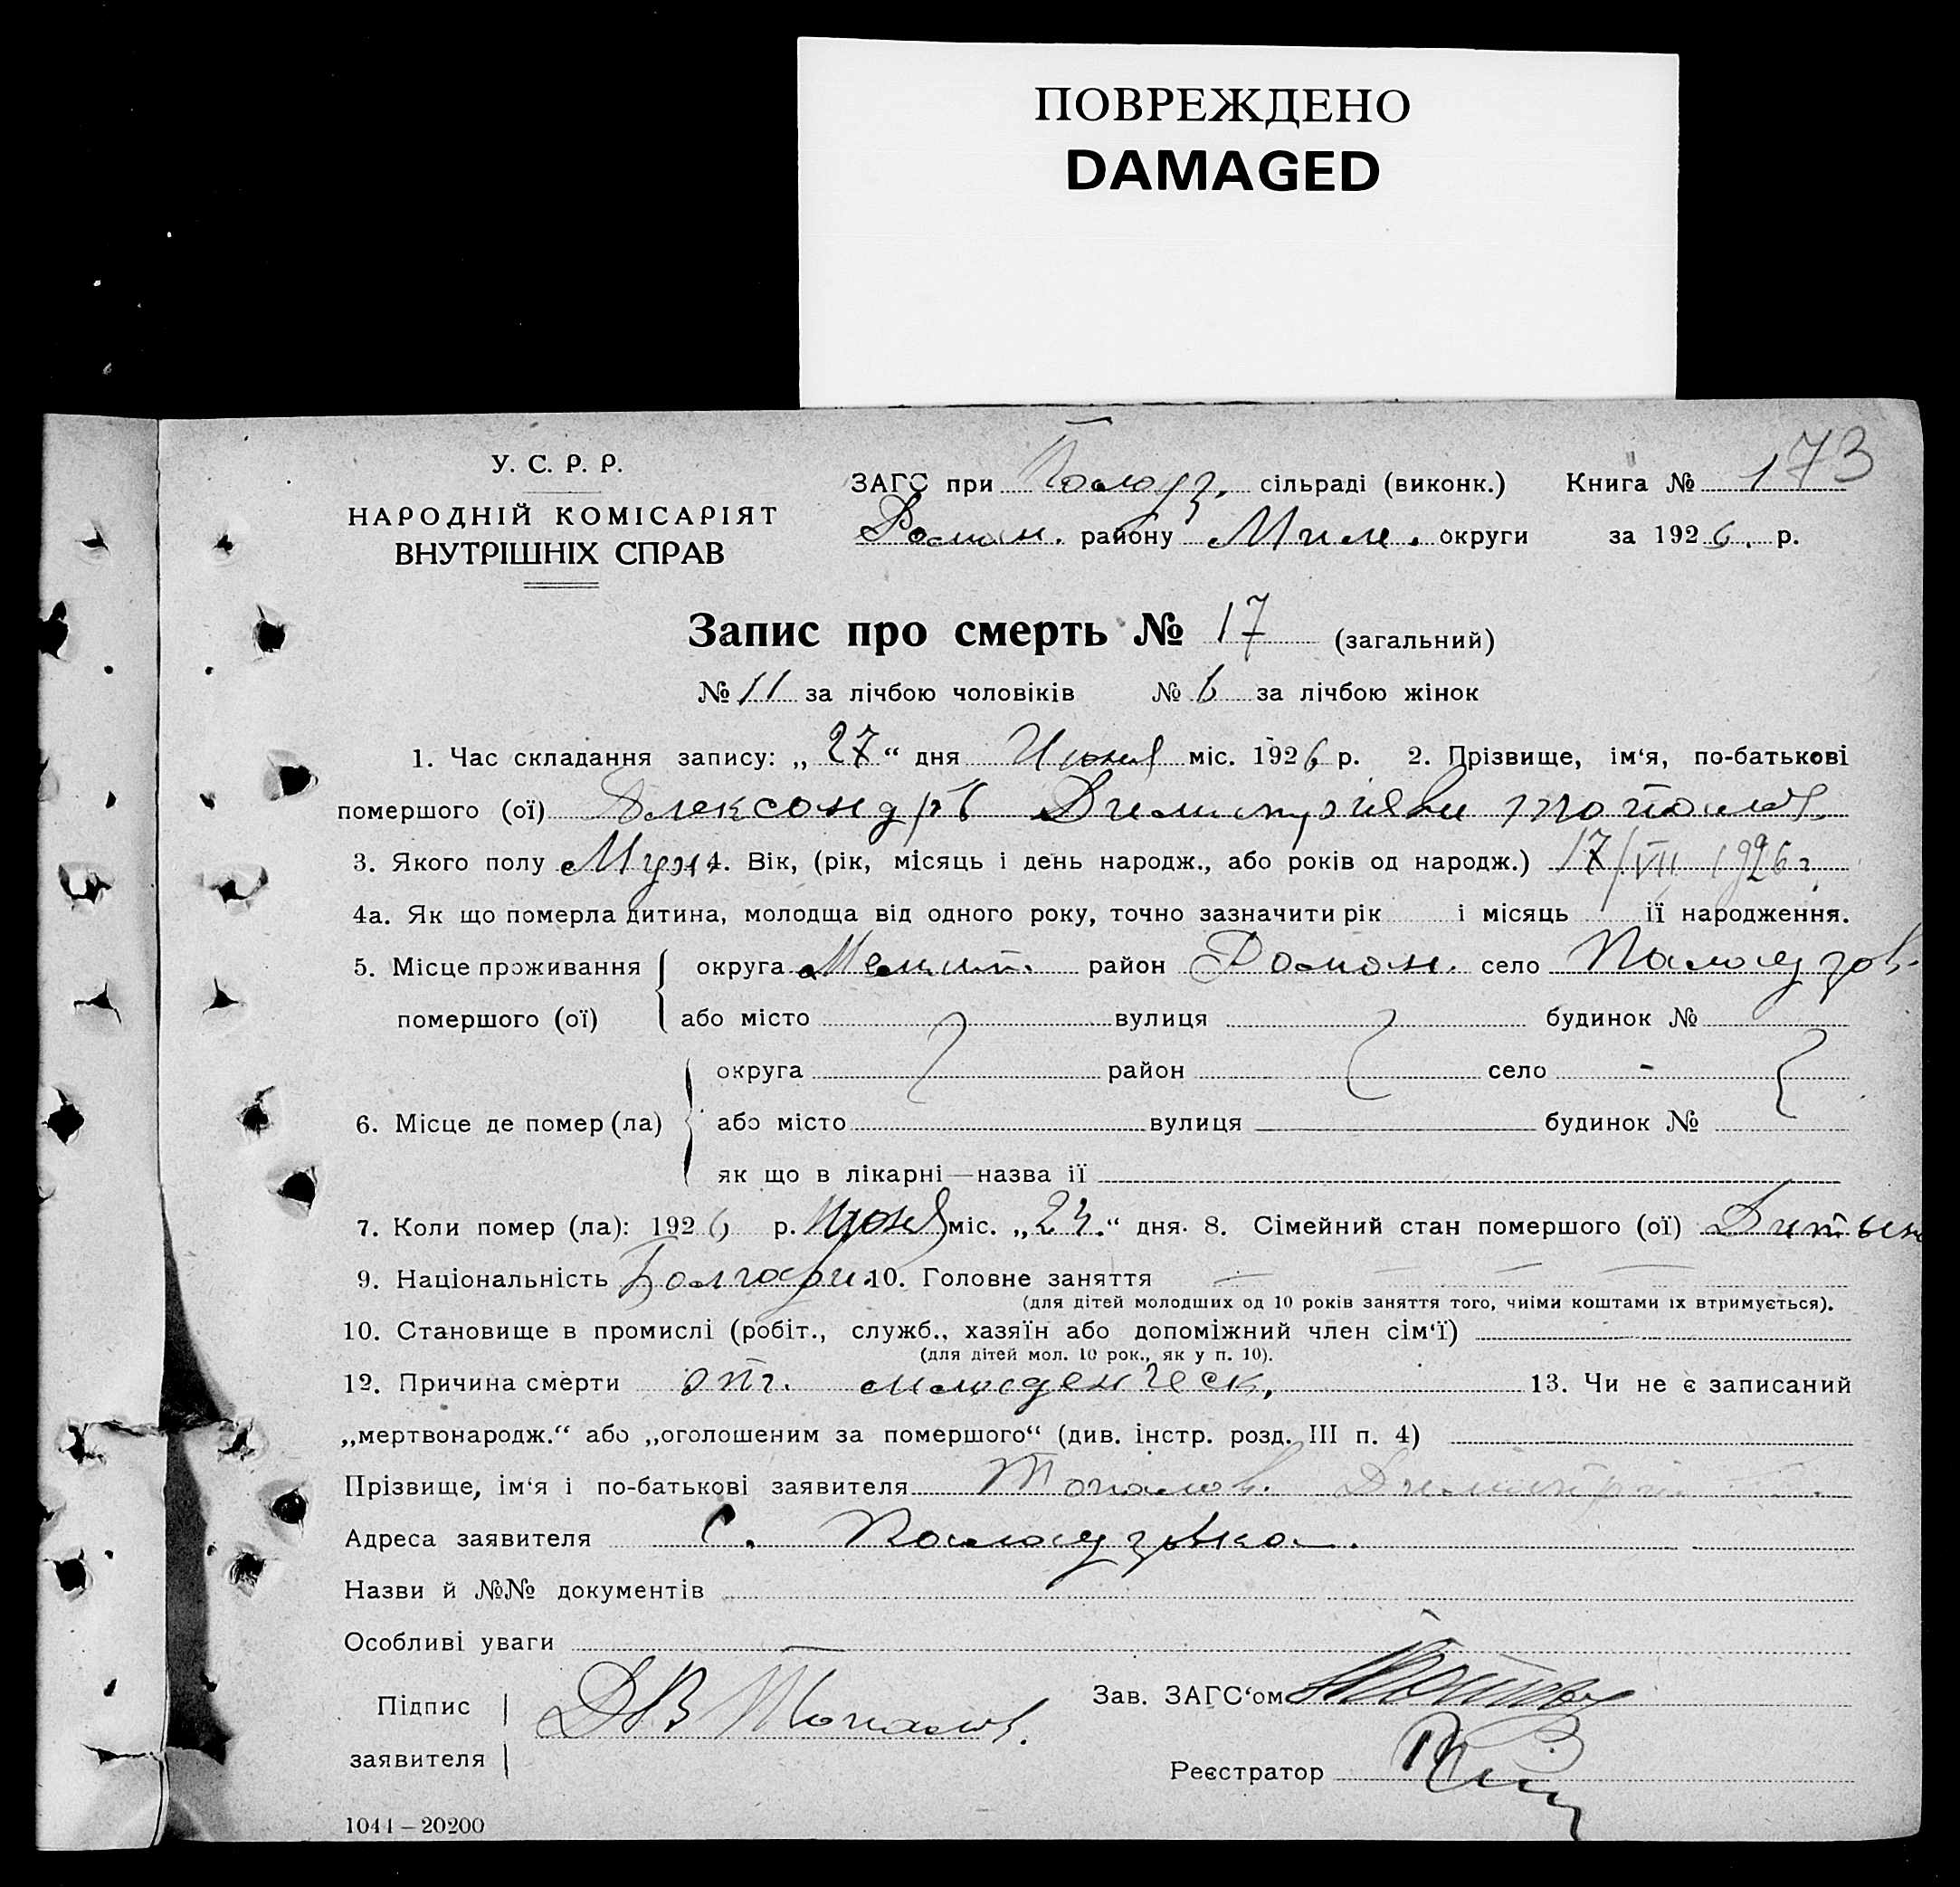 ПОВРЕЖДЕНО
DAMAGED
У. С. Р. Р.
НАРОДНІЙ КОМІСАРІЯТ
ВНУТРІШНІХ СПРАВ
ЗАГС при Палаузс. сільраді (виконк.) Книга № 173
Роман. району Мил. округи за 1926. р.
Запис про смерть № 17 (загальний)
№ 11 за лічбою чоловіків № 6 за лічбою жінок
1. Час складання запису: „27“ дня Июня міс. 1926 р. 2. Прізвище, ім‘я, по-батькові
помершого (ої) Александръ Топалов
3. Якого полу Муж. 4. Вік, (рік, місяць і день народж., або років од народж.) 17/VII 1926 г.
4а. Як що померла дитина, молодща від одного року, точно зазначити рік і місяць її народження.
5. Місце проживання округа Мелит. район Роман. село
помершого (ої) або місто вулиця будинок №
округа район село -
6. Місце де помер (ла) або місто вулиця будинок №
як що в лікарні—назва її
7. Коли помер (ла): 1926 р. Июня міс. „24.“ дня. 8. Сімейний стан помершого (ої)
9. Національність 10. Головне заняття
(для дітей молодших од 10 років заняття того, чиіми коштами їх втримується).
10. Становище в промислі (робіт., служб., хазяїн або допоміжний член сім‘ї)
(для дітей мол. 10 рок., як у п. 10).
12. Причина смерти от младенческ. 13. Чи не є записаний
„мертвонародж.“ або „оголошеним за помершого“ (див. інстр. розд. III п. 4)
Прізвище, ім‘я і по-батькові заявителя Топалов. Димитрий
Адреса заявителя С.
Назви й №№ документів
Особливі уваги
Підпис
заявителя
Д В Топалов.
Зав. ЗАГС‘ом
Реєстратор
1044—20200